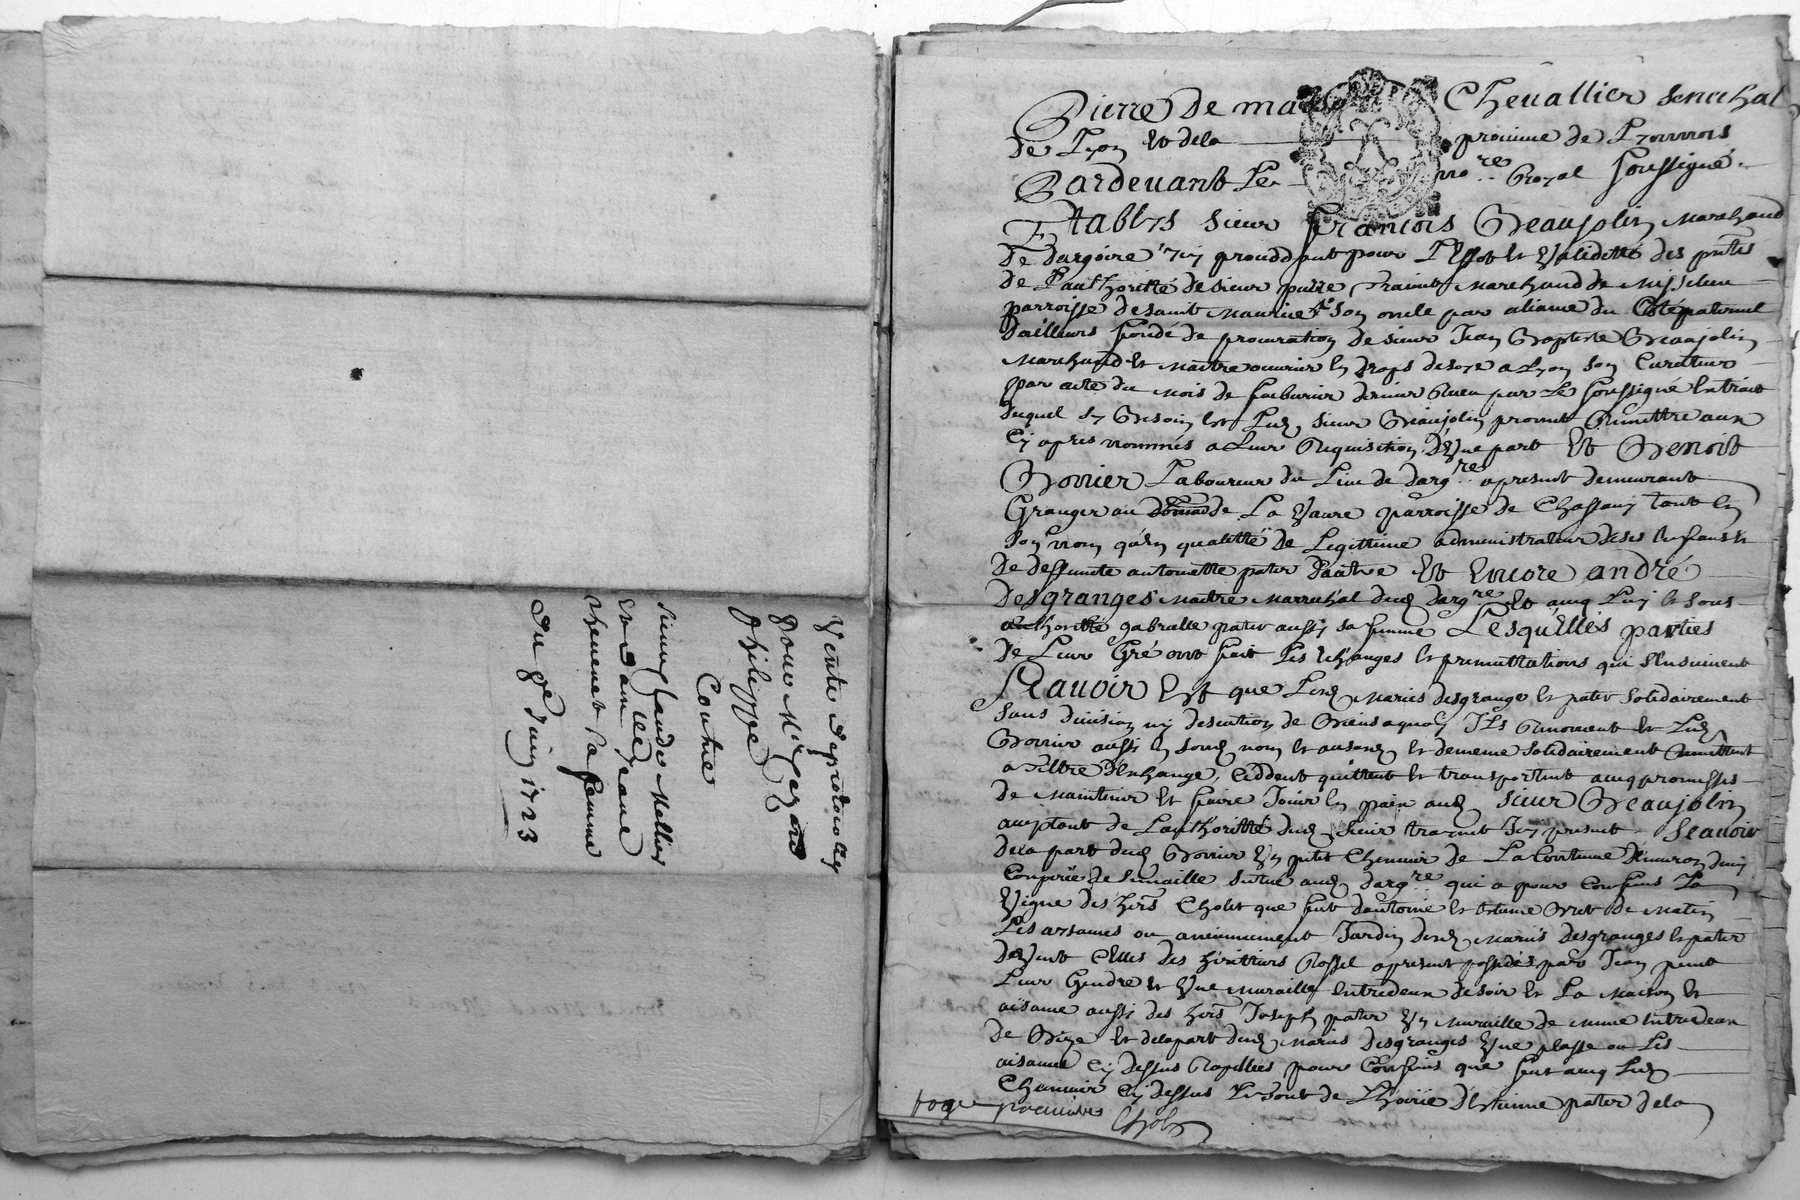 Vente depioдolley
pour Mr Gayard
Philippe
Contre
Sieur Claude Mallier
et dam.lle Jeanne
Thevenet sa femme
du 9e Juin 1723
Pierre De mas Chevallier senechal
de Lyon et dela province de Lyonnois
Pardevant Le no.re Royal soussigné
Etablys sieur François Beaujolin marchand
de dargoire icy procedant pour L'effet et validitté des pntes
de L'authoritté de sieur pierre Trainet marchand de
parroisse de saint Maurice son oncle par aliance du Coté paternel
d'ailleurs fondé de procuration de sieur Jean Baptiste Beaujolin
Marchand et maitre ouvrier en draps desoye a Lyon son Curateur
par acte du mois de febvrier dernier Receu par Le soussigné Extrait
duquel sy Besoin est Led. sieur Beaujolin promet Remettre aux
cy apres nommés a Leur Requisition d'Une part Et Benoit
Bovrier Laboureur du Lieu de darg.re apresent demeurant
Granger au de La Vaure parroisse de Chassany tant en
son nom qu'en qualitté de Legittime administrateur de ses Enfans et
de deffunte antoinette pater d'autre Et Encore andré
Desgranges maitre marechal dud. darg.re Et avec Luy et sous
authoritté gabrielle pater aussy sa femme Lesquelles parties
de Leur Gré ont fait Les Echanges et permuttations qui s'Ensuivent
Scavoir Est que Lesd. mariés desgrange et pater solidairement
sans division ny discution de Biens auquoy ILs Renoncent et Led.
Bovrier aussi en sond. nom et ausd. et demême solidairement Remettent
a Tiltre d'Echange, Ceddent quittent et transportent avec promesses
de Maintenir et faire Jouir en paix aud. sieur Beaujolin
acceptant de L'authoritté dud. sieur trainet Icy present Scavoir
dela part dud. Bovrier Un petit Chenevier de La Contenue d'environ demy
Couppée de semaille situé aud. darg.re qui a pour Confins La
Vigne des hers Cholet que fut d'antoine et Etienne de matin
Les aysances ou anciennement Jardin desd. Mariés desgranges et pater
de Vent Celles des héritiers Rossel apresent possédés par Jean
Leur Gendre et Une muraille entredeux de soir et La Maison et
aisance aussi des hers Joseph pater Un muraille de même Entredeux
de Bize Et dela part desd. mariés desgranges Une plasse ou Les
aisance Cy dessus Rapellées pour Confins que sont avec Led.
Chenevier Cy dessus de L'hoirie d'Etienne pater dela
page premiere Cholet